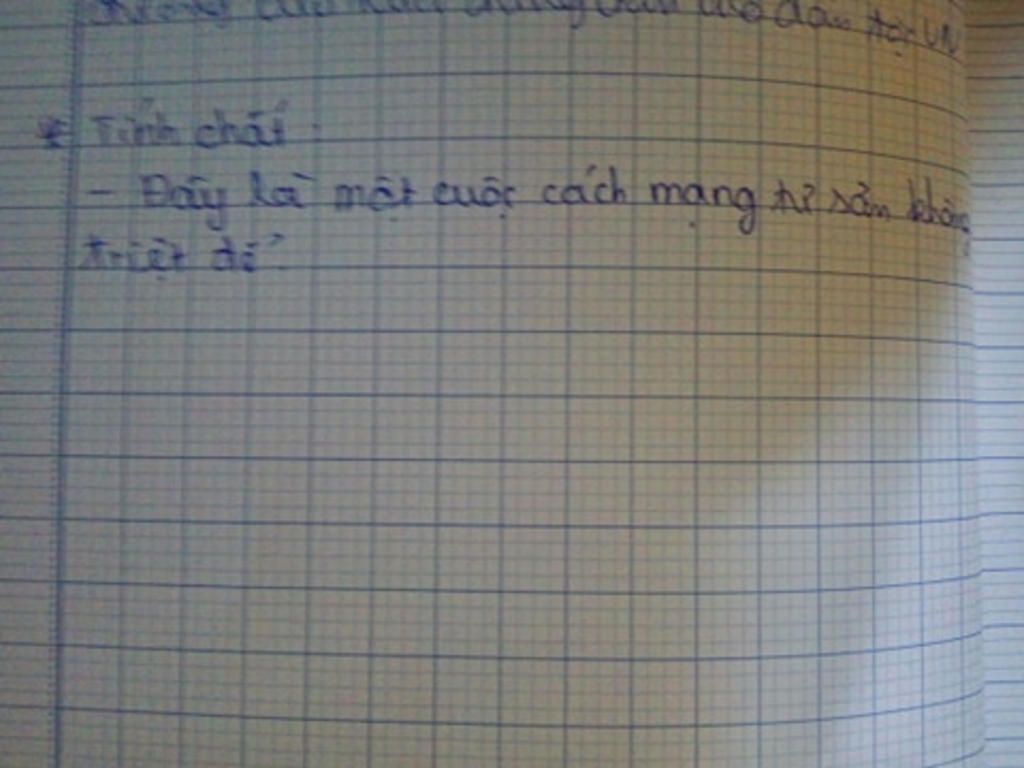 dân tộc VN
* Tính chất:
- Đây là một cuộc cách mạng tư sản không
triệt để.